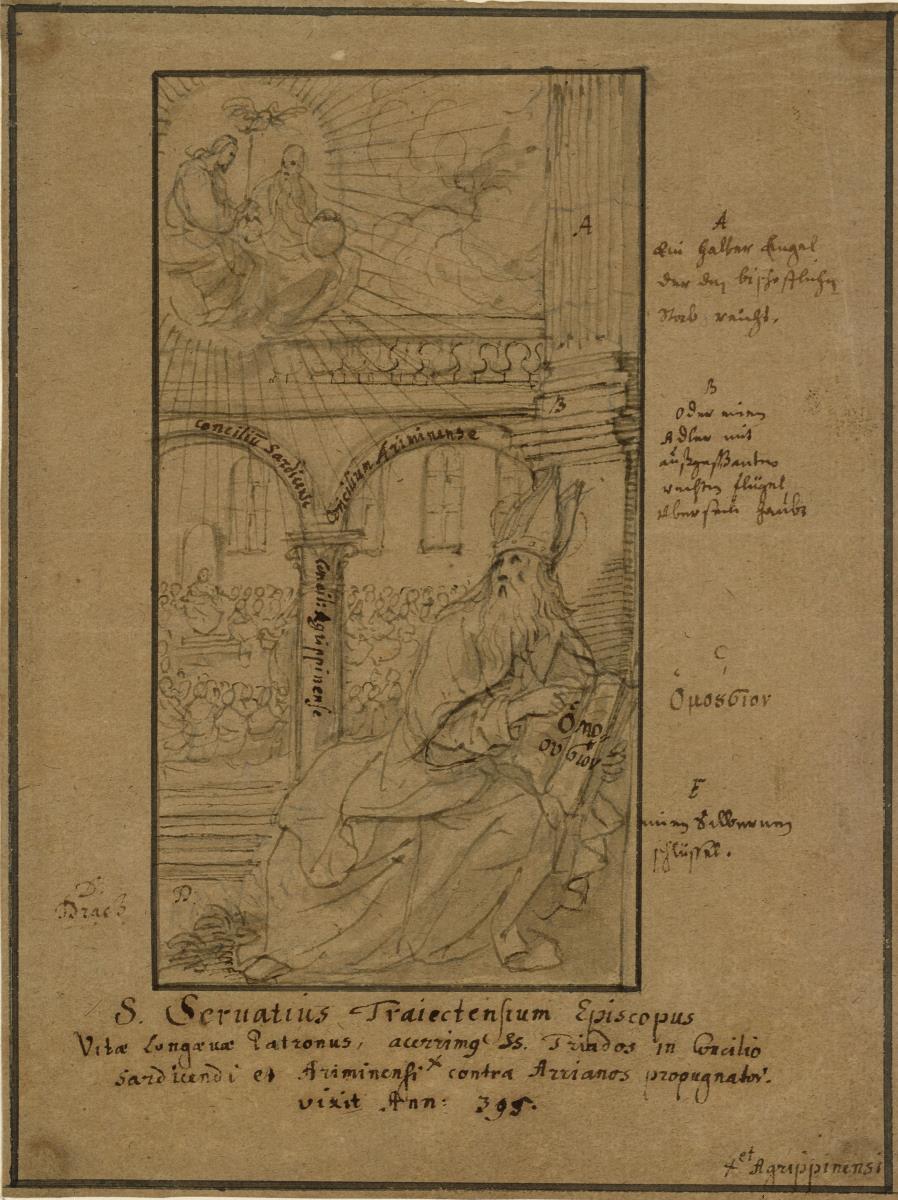 A
A
Ein halber Engel
der den bischofflichen
Stab reicht.
B
B
Oder einen
Adler mit
außgespanten
rechten flügel
über sein haubt
Conciliū Sardicense
Concilium Ariminense
Concili: Agrippinense
C
Ὁμοȣσιον
Ὁμο-
ουσιον
E
einen Silbernen
schlüssel.
D.
Drach
D.
S. Servatius Traiectensium Episcopus
Vitæ longævæ Patronus, acerrimꝰ SS. Triados in Concilio
Sardicendi et Ariminensi x contra Arrianos propugnator.
vixit Ann: 395.
x et Agrippinensi